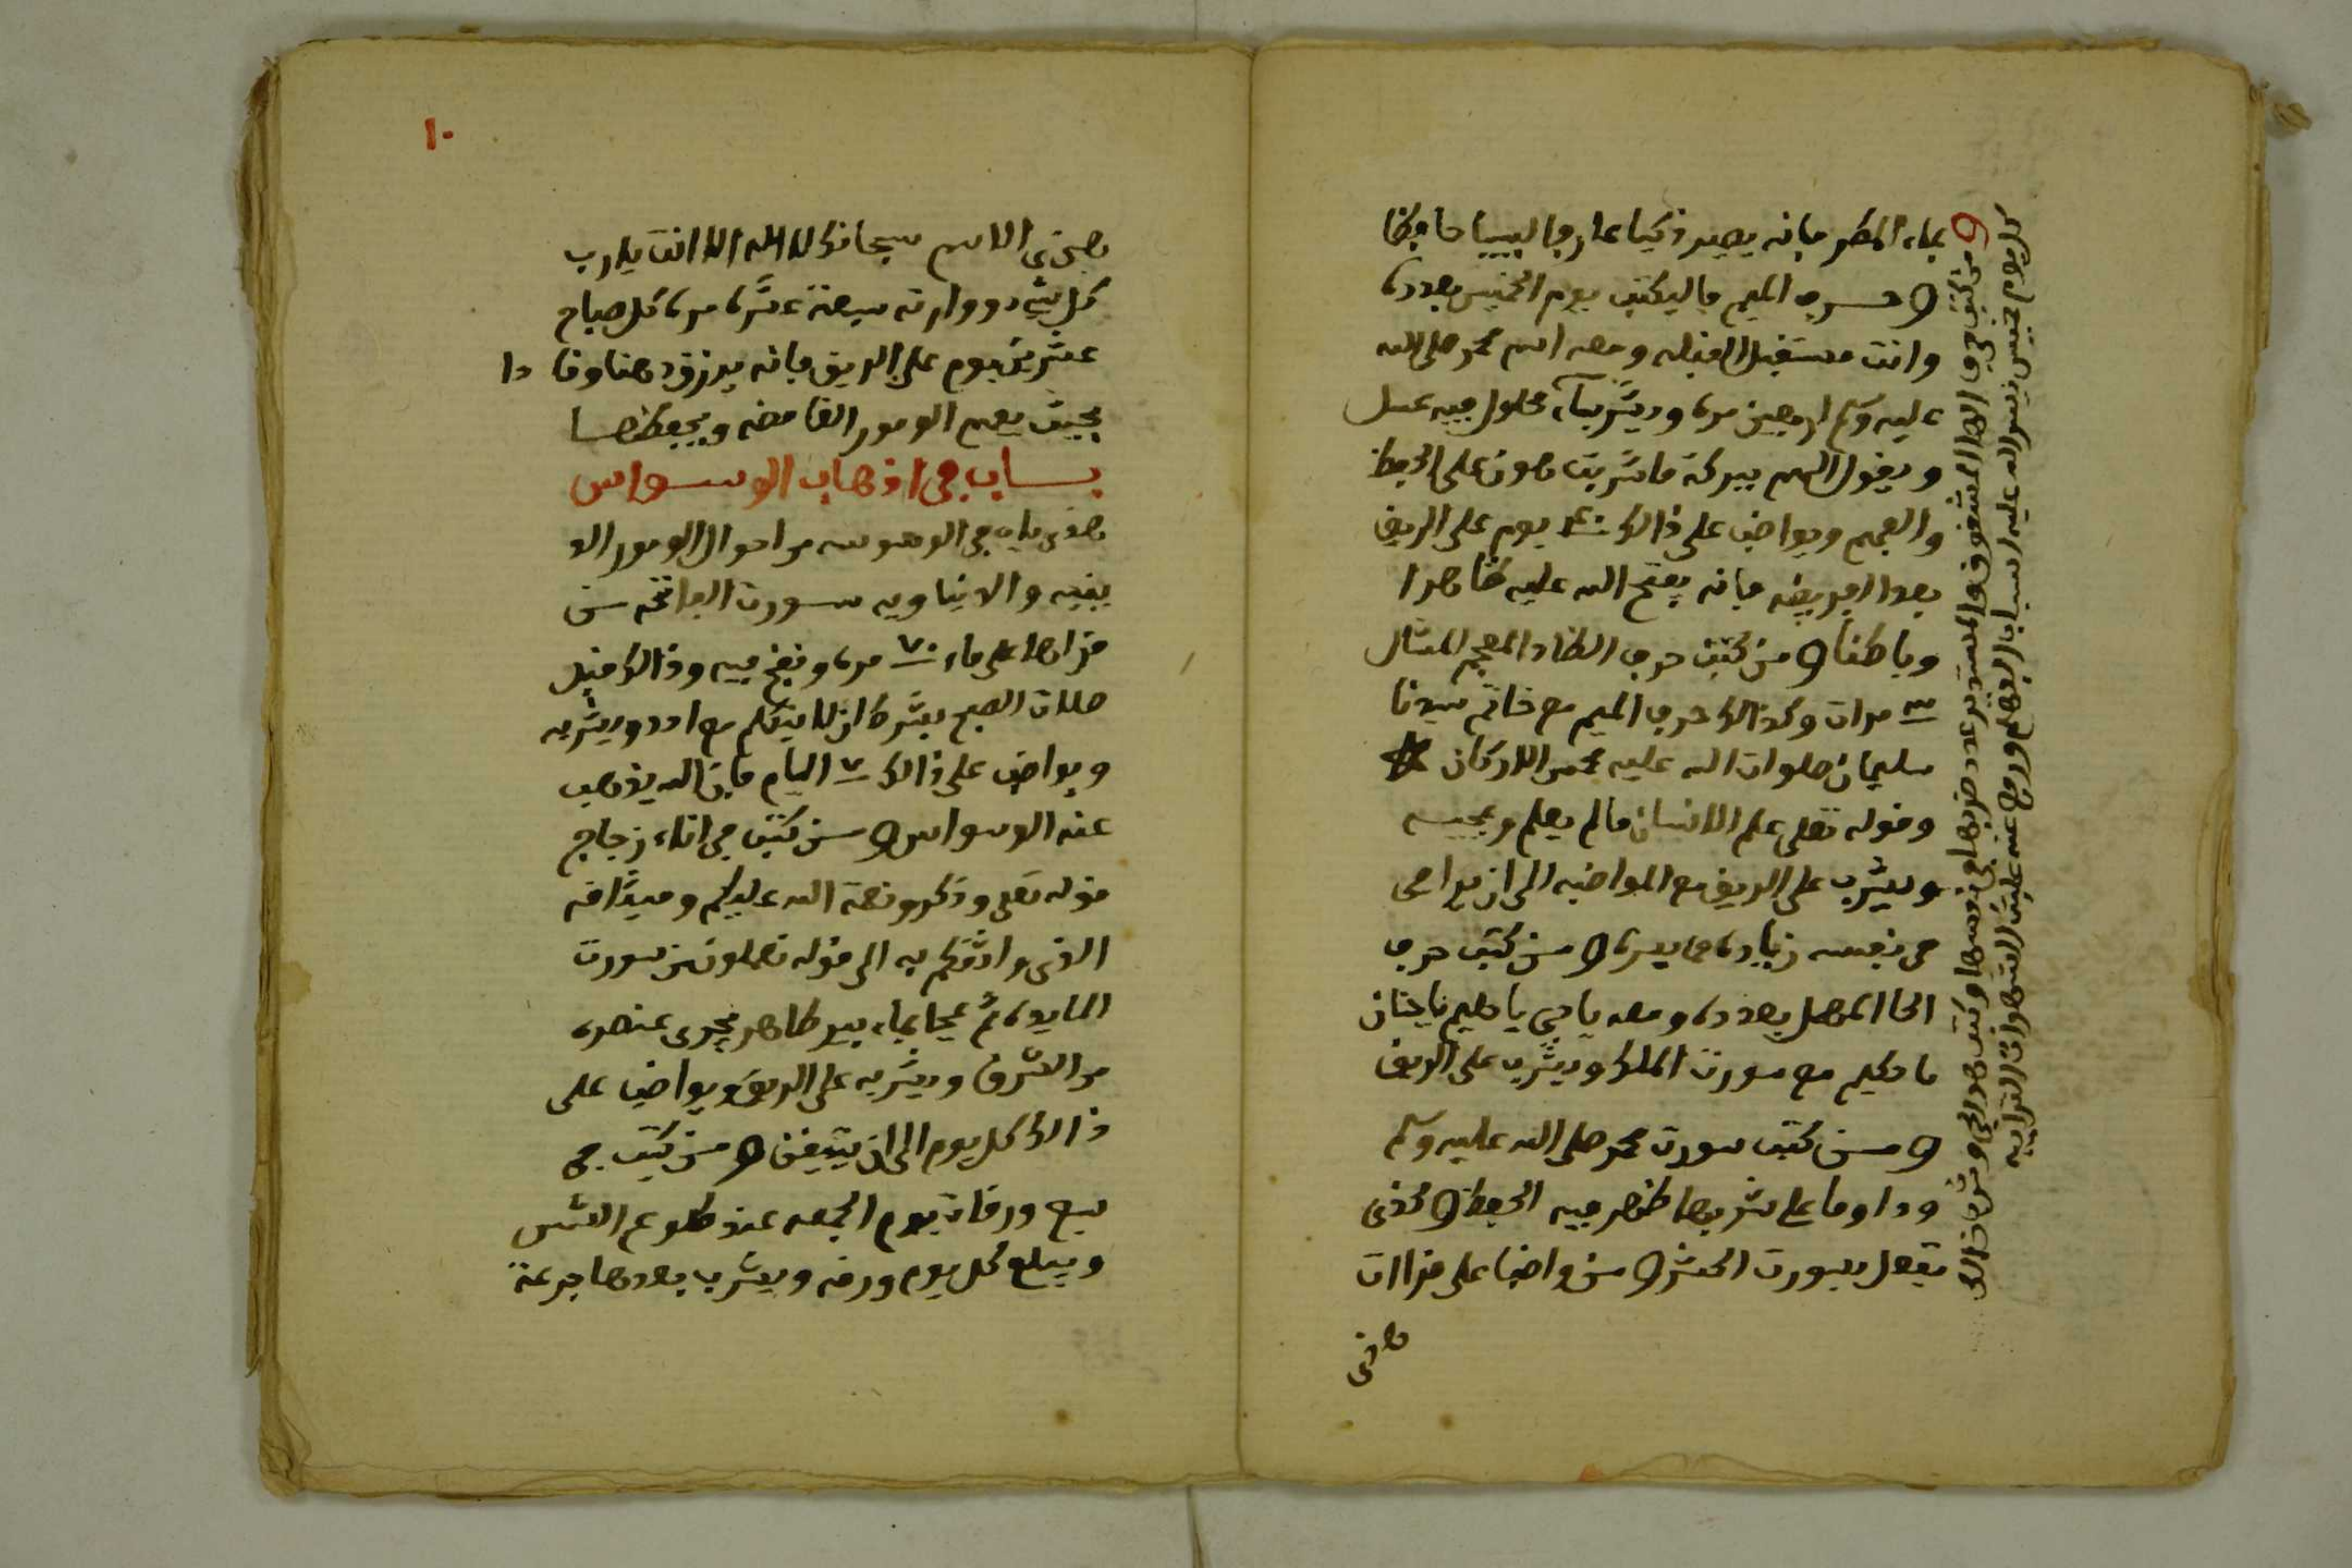 بماء المطر فانه يصير ذكيا عارفا لبيبا حافظا
و حرف الميم فاليكتب يوم الخميس بعدده
وانت مستقبل القبله ومعه اسم محمد صلى الله
عليه وسلم اربعين مره ويشربـ محلول فيه عسل
ويقول اللهم ببركة ماشربت على الحفظ
والفهم ويواضب على ذالك ٤٠ يوم على الريق
بعد الفريضه فانه يفتح الله عليه ظاهرا
وباطنا و من كتب حرف الظاد المعجم للمثال
٣ مرات وكذالك حرف الميم مع خاتم سيدنا
سليمان صلوات الله عليه الاركان
وقوله تعلى علم الانسان مالم يعلم
ويشرب على الريق مع المواضبه الى ان يراعى
في نفسه زياده و من كتب حرف
الحا المهمل بعدده ومعه ياحي يا حليم ياحنان
يا حكيم مع سورت الملك ويشرب على الريق
و من كتب سورت محمد صلى الله عليه وسلم
وداوما على شربها ظهر فيه الحفظ و كذى
تفعل بسورت الحشر و من واضبا على قراات
هذى
و من كتب حرف الها المشقوق والمستدير عدد ضربها في نفسها وكتب وشرب ذالك
كل يوم خميس يسر الله عليه اسباب الفهم ورفع عنه الشهوات الترابيه
١٠
هذى الاسم سبحانك لااله الا انت يارب
كل شيء ووارثه سبعة عشره مره كل صباح
عشرين يوم على الريق فانه يرزق ذهنا وقا دا
بحيث يفهم الومور الغامضه ويحفظها
بـاب في اذهاب الوسواس
هذى باب في الوسوسه من احوال الومور الد
ينيه والدنياويه سورت الفاتحه من
قراها على ماء ٧٠ مره ونفخ فيه وذالك قبل
صلات الصبح بشرط ان لا يتكلم مع احد ويشربه
ويواضب على ذالك ٧ اليام فان الله يذهب
عنه الوسواس و من كتب في اناء زجاج
قوله تعلى وذكرو نعمة الله عليكم وميثاقه
الذي واثقكم به الى قوله تعملون من سورت
المايده ثم محا بماء بير طاهر يجرى عنصره
من الشرق ويشربه على الريق ويواضب على
ذالك كل يوم الى ان يتيقن و من كتب في
سبع ورقات يوم الجمعه عند طلوع الشمس
ويبلع كل يوم ورقه ويشرب بعدها جرعة